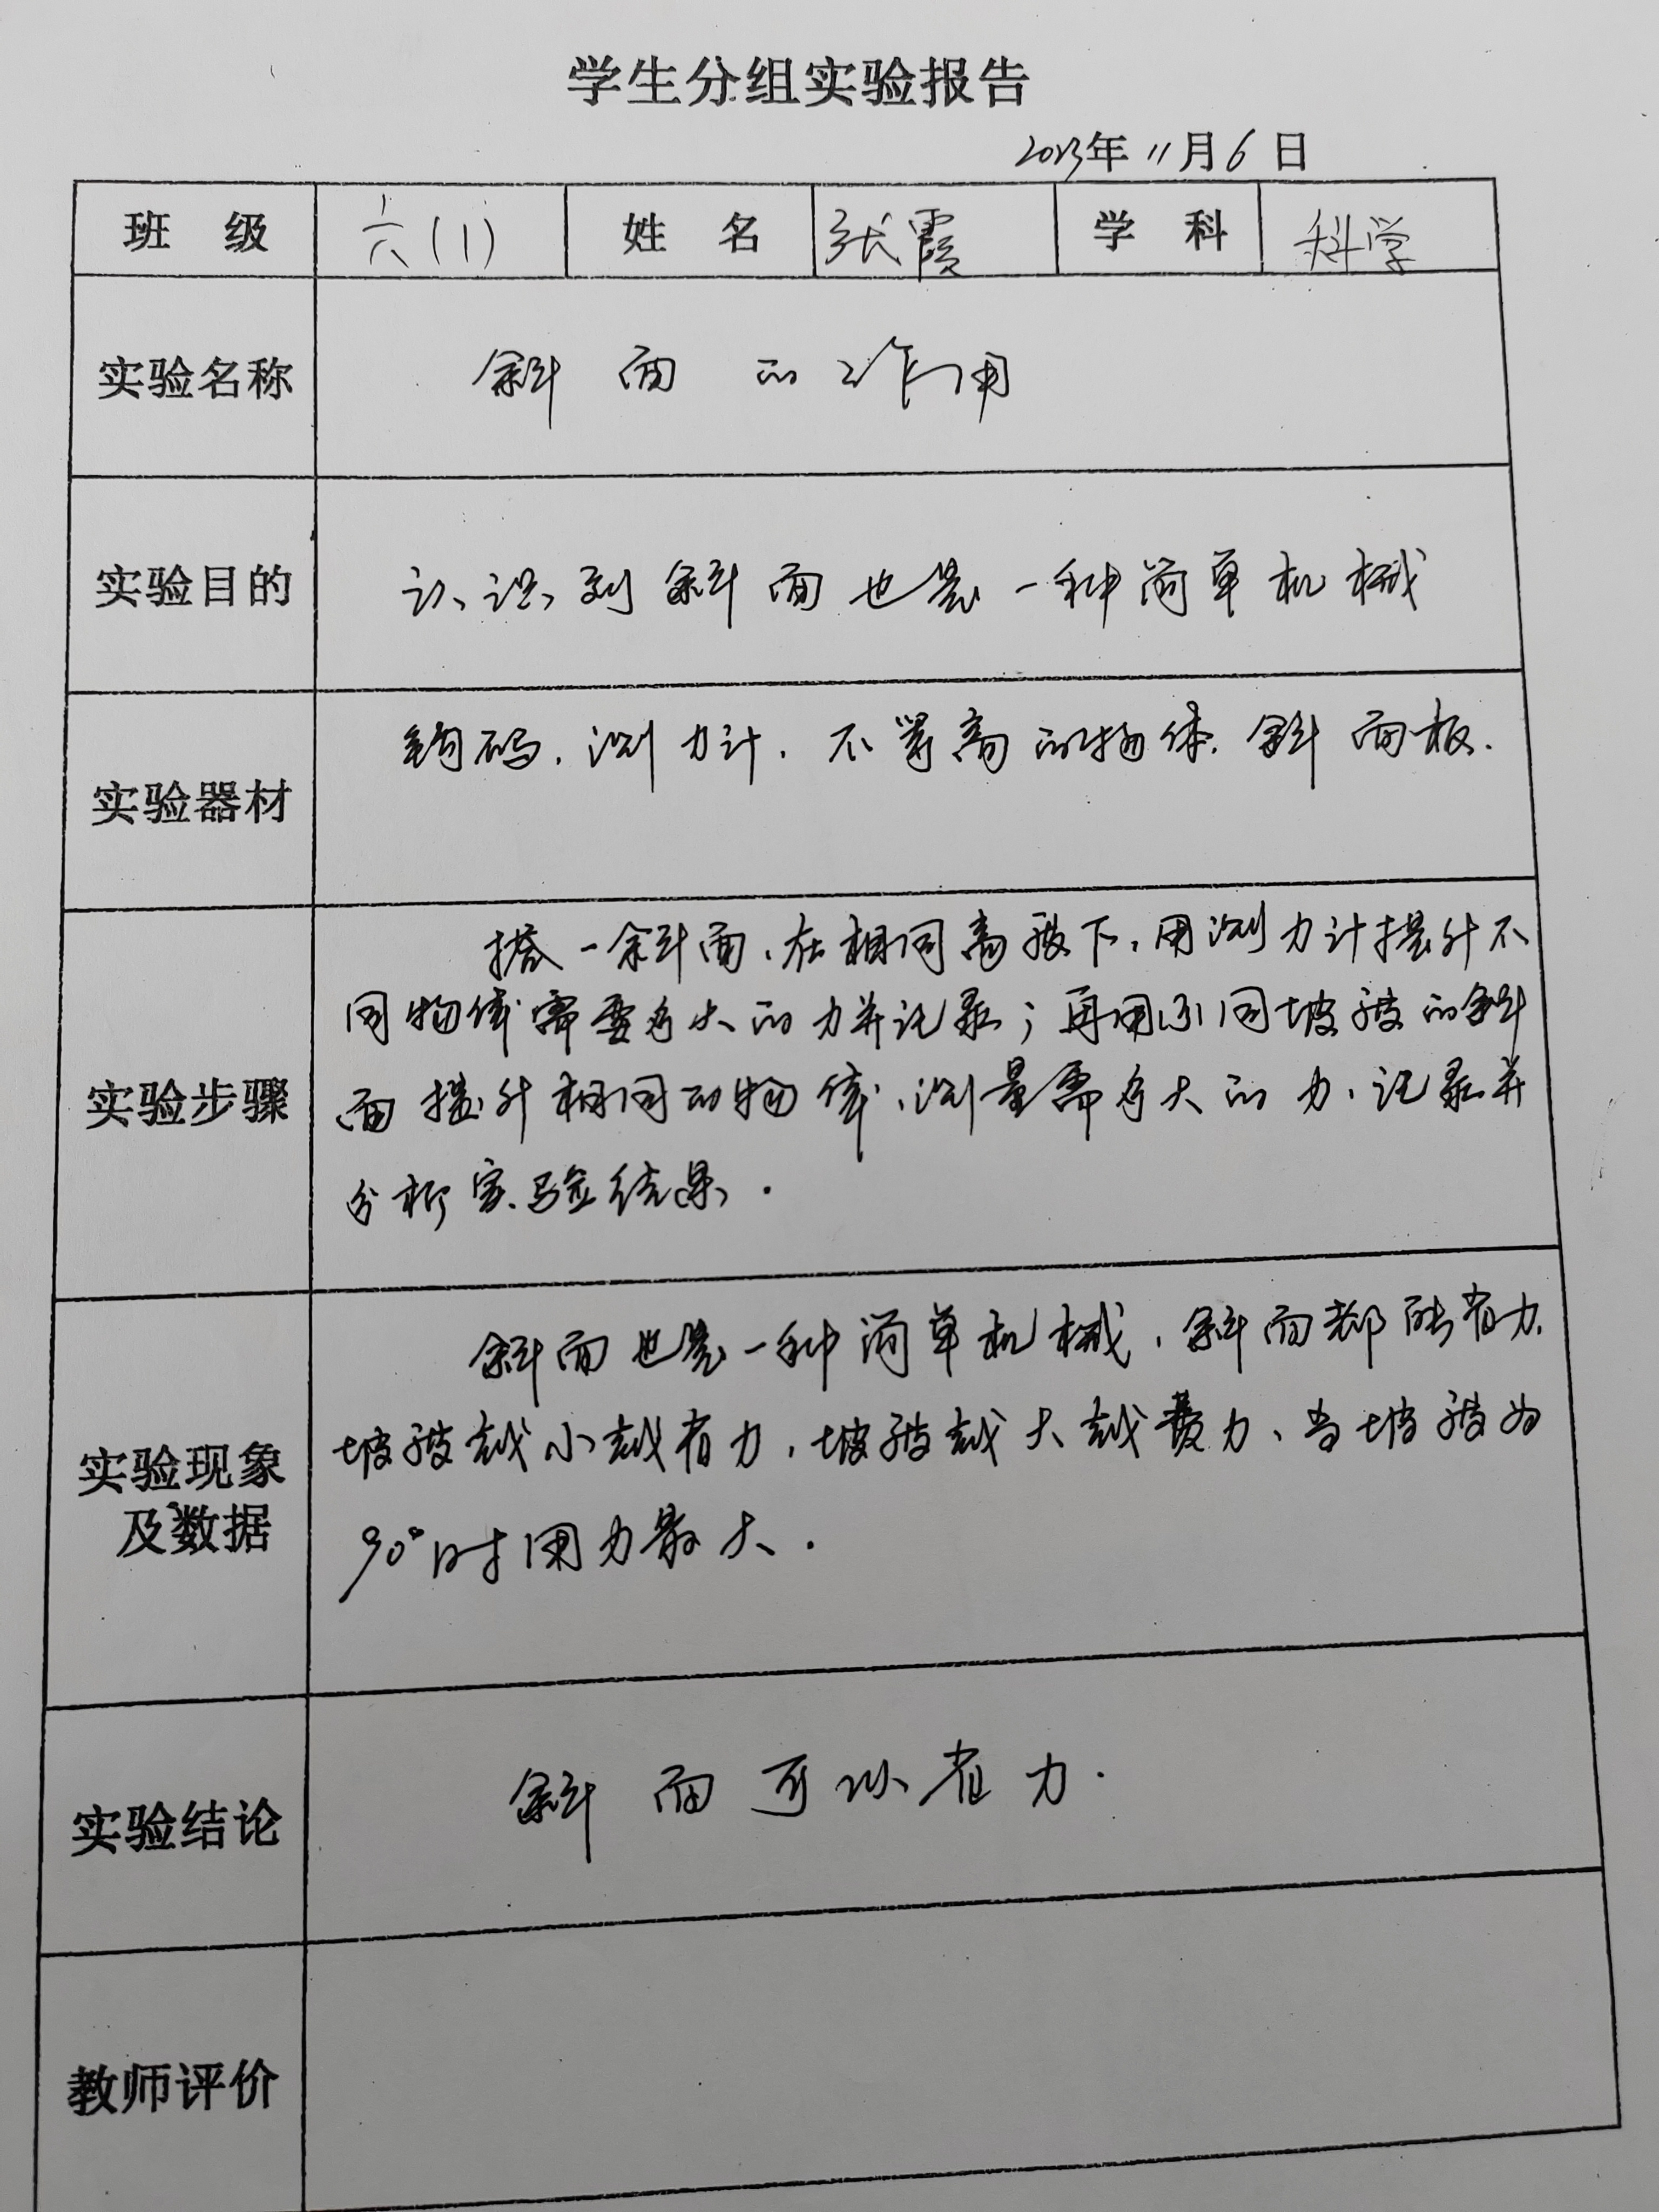 学生分组实验报告
2023年11月6日
班 级 六(1) 姓 名 张霞 学 科 科学
实验名称 斜面的作用
实验目的 认识到斜面也是一种简单机械
实验器材 钩码、测力计、不等高的物体、斜面板.
实验步骤
搭一斜面,在相同高度下,用测力计提升不
同物体需要多大的力并记录;再用不同坡度的斜
面提升相同的物体,测量需多大的力,记录并
分析实验结果.
实验现象
及数据
斜面也是一种简单机械,斜面都能省力.
坡度越小越省力,坡度越大越费力、当坡度为
90°时用力最大.
实验结论 斜面可以省力.
教师评价